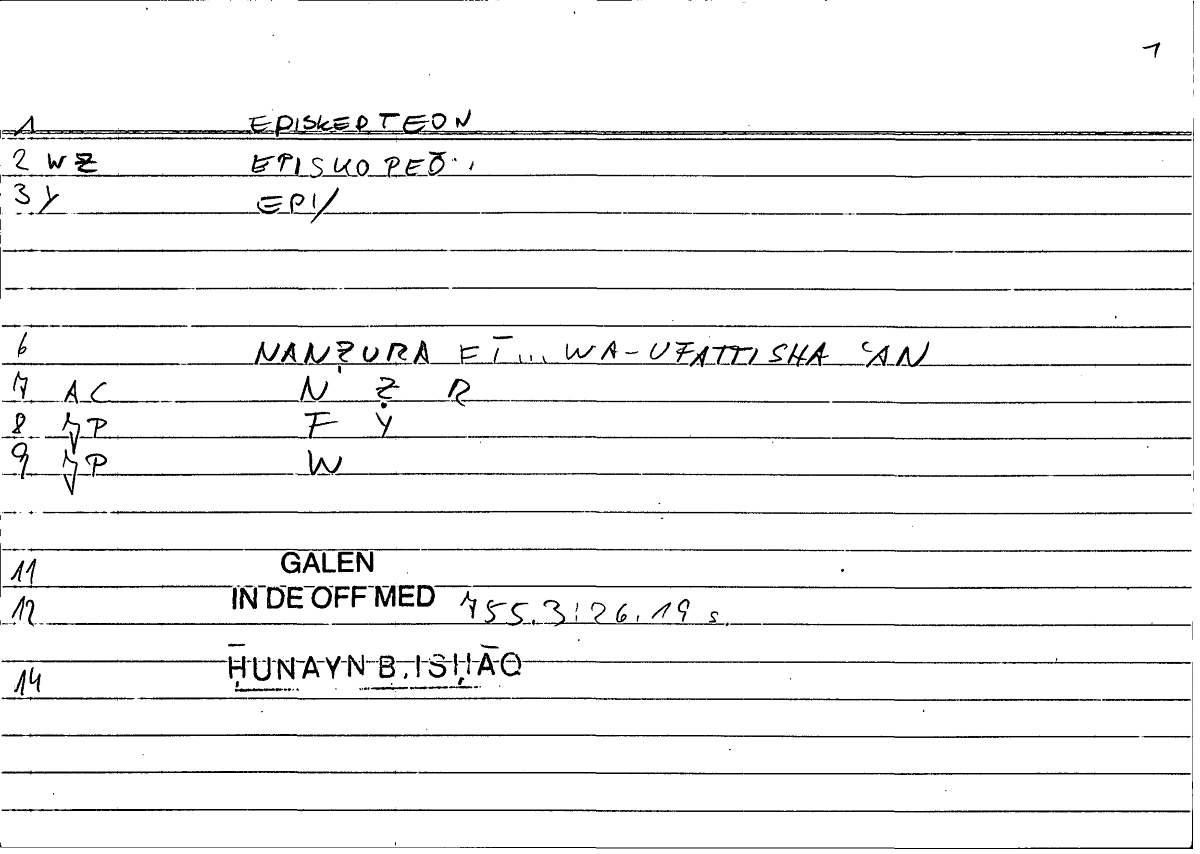 1
1 EPISKEPTEON
2 WZ EPISKOPEŌ
3 Y EPI/
6 NANẒURA FĪ... WA-UFATTISHA ʿAN
7 AC N Ẓ R
8 JP F Y
9 JP W
11 GALEN
12 IN DE OFF MED 755.3:26.19 s.
14 ḤUNAYN B. ISḤĀQ